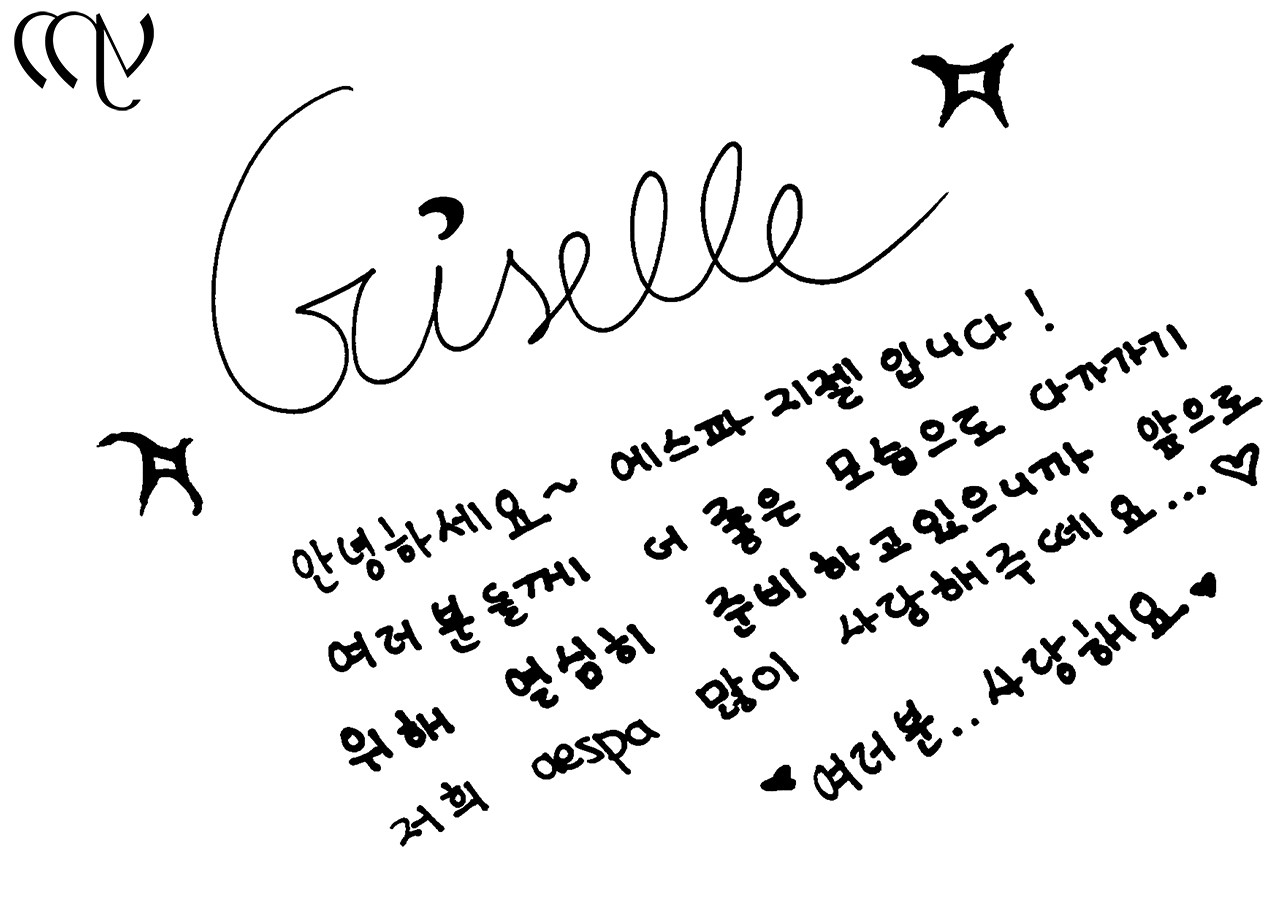 MY
Giselle
안녕하세요~ 에스파 지젤 입니다!
여러분들께 더 좋은 모습으로 다가가기
위해 열심히 준비하고있으니까 앞으로
저희 aespa 많이 사랑해주떼요...♡
♥여러분.. 사랑해요♥